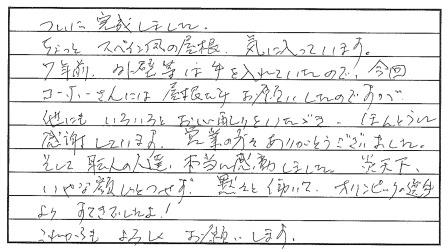 ついに完成しました。
ちょっとスペイン風の屋根、気に入っています。
7年前、外壁等は手を入れていたので、今回
さんには屋根だけお願いしたのですが
他にもいろいろとお心配りをいただき、ほんとうに
感謝しています。営業の方々ありがとうございました。
そして職人の人達、本当に感動しました。炎天下、
いやな顔ひとつせず、黙々と働いて、オリンピックの選手
よりすてきでしたよ！
これからもよろしくお願いします。